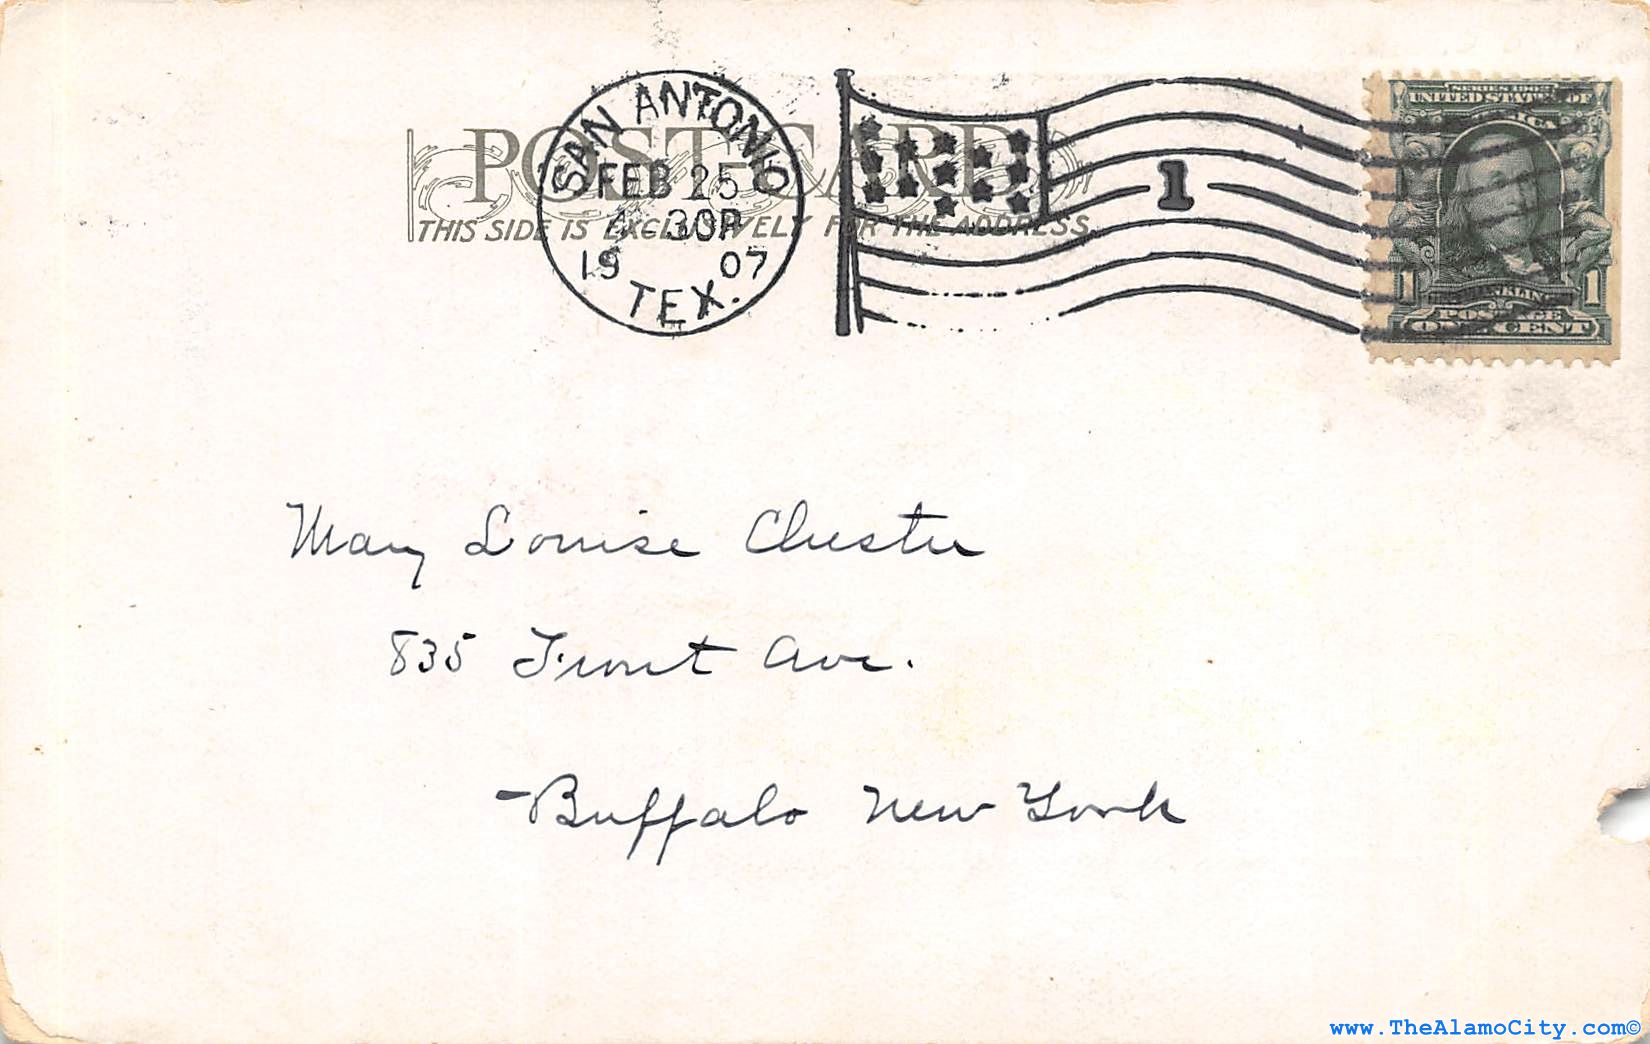 SAN ANTONIO
FEB 25
4 30P
19 07
TEX.
1
POST CARD
THIS SIDE IS EXCLUSIVELY FOR THE ADDRESS.
SERIES 1902
UNITED STATES OF
AMERICA
1 FRANKLIN 1
POSTAGE
ONE CENT
Mary Louise Chester
835 Front Ave.
Buffalo New York
www.TheAlamoCity.com©